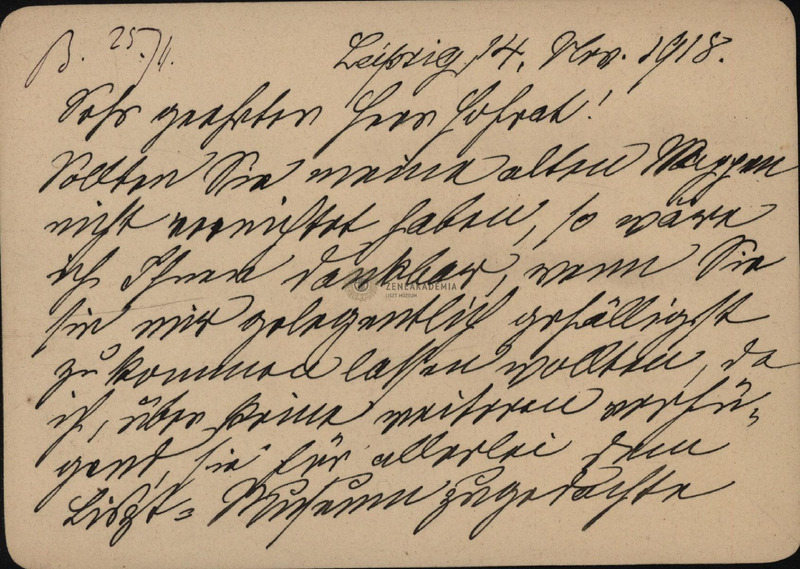 B. 25./11.
Leipzig, 14. Nov. 1918.
Sehr geehrter Herr Hofrat!
Sollten Sie meine alten Mappen
nicht vernichtet haben, so wäre
ich Ihnen dankbar, wenn Sie
sie mir gelegentlich gefälligst
zukommen lassen wollten, da
ich, über keine weiteren verfü-
gend, sie für allerlei dem
Liszt-Museum zugedachte
ZENEAKADÉMIA
LISZT MÚZEUM